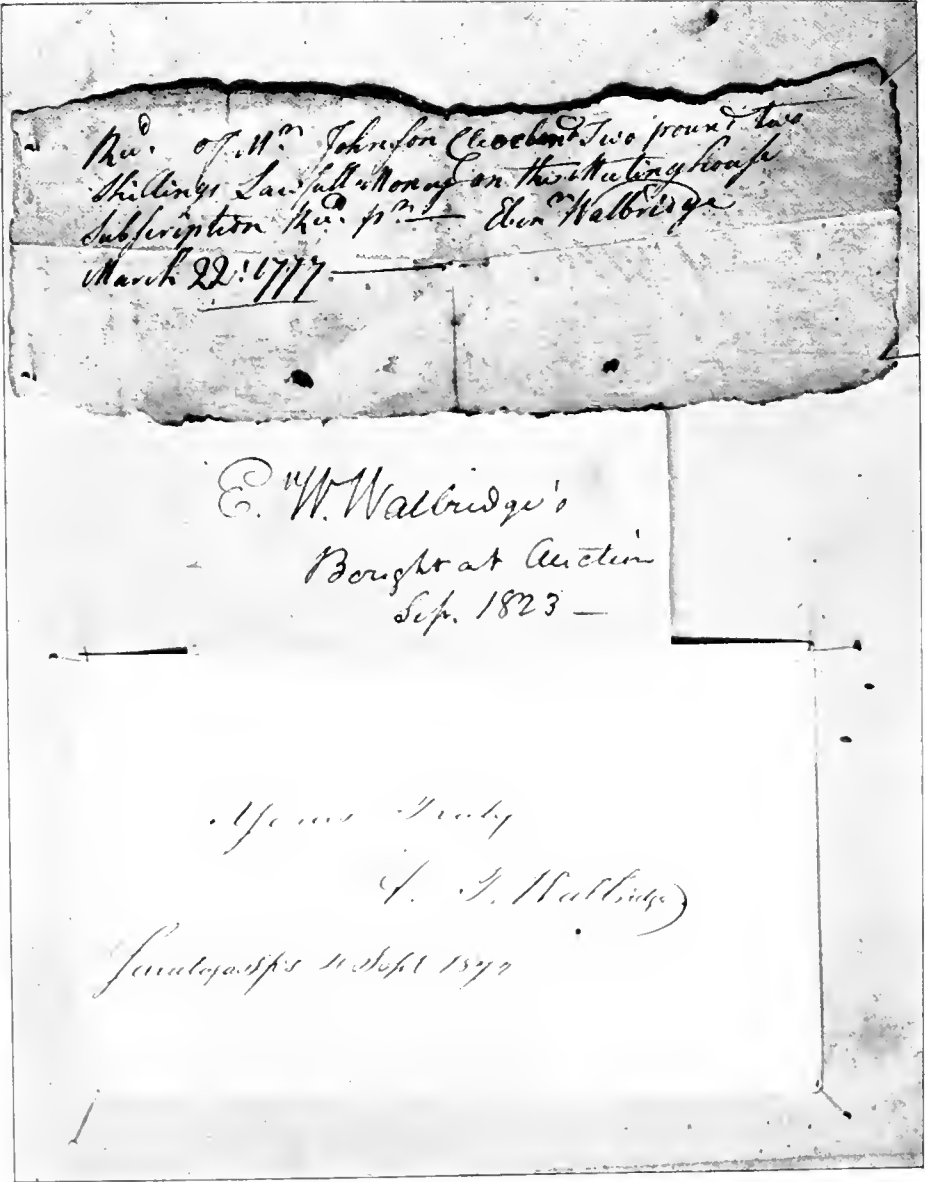 Recd. of Mr. Johnson Cleveland Two pound two
Shillings Lawfull Money on the Meeting house
Subscription Recd. pr — Ebenr Walbridge
March 22: 1777
E. W. Walbridge's
Bought at Auction
Sep. 1823 —
Yours Truly
Walbridge
Sept 1877